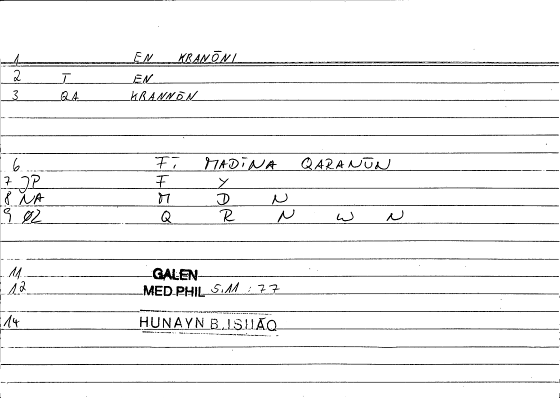 1 EN KRANŌNI
2 T EN
3 QA KRANNŌN
6 FĪ MADĪNA QARANŪN
7 JP F Y
8 NA M D N
9 ØZ Q R N W N
11 GALEN
12 MED.PHIL 5.11 : 77
14 HUNAYN B.ISHAQ